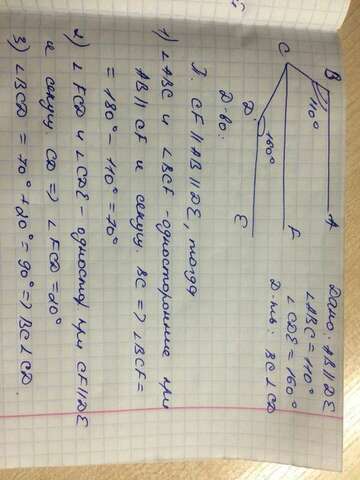 Дано: AB || DE
∠ABC = 110°
∠CDE = 160°
Д-ть: BC ⊥ CD
B
A
110°
C
F
D
160°
E
Д-во:
Д. CF || AB || DE, тогда
1) ∠ABC и ∠BCF - односторонние при
AB || CF и секущ. BC => ∠BCF =
= 180° - 110° = 70°
2) ∠FCD и ∠CDE - одностор при CF || DE
и секущ CD => ∠FCD = 20°
3) ∠BCD = 70° + 20° = 90° => BC ⊥ CD.